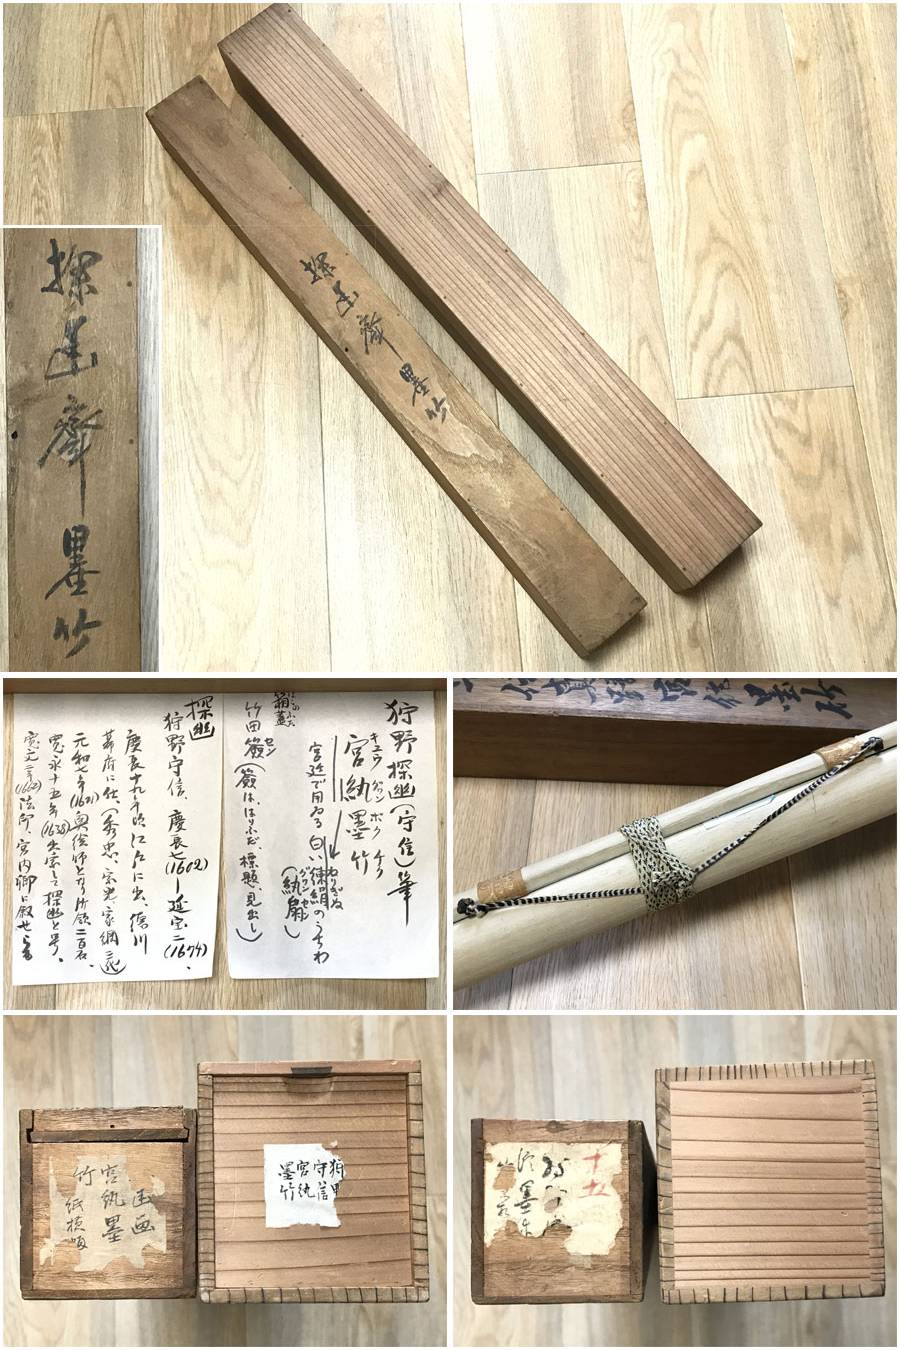 探幽齋墨竹
探幽齋墨竹
狩野探幽(守信)筆
キュウ グワン ボク チク
宮紈墨竹
宮廷で用ゐる白い練絹のうちわ
ねりぎぬ
(紈扇)
箱蓋
竹田簽(簽は、はりふだ、標題、見出し)
セン
探幽
狩野守信、慶長七(1602)―延宝二(1674)、
慶長十九年 江戸に出、徳川
幕府に仕(秀忠、家光、家綱 三代)
元和七年(1621)奥絵師となり 二百石、
寛永十五年(1638)出家して探幽と号、
寛文二年(1662)法印、宮内卿に叙せらる
画
宮紈墨
竹 紙横
狩野
守信
宮紈
墨竹
十五
墨